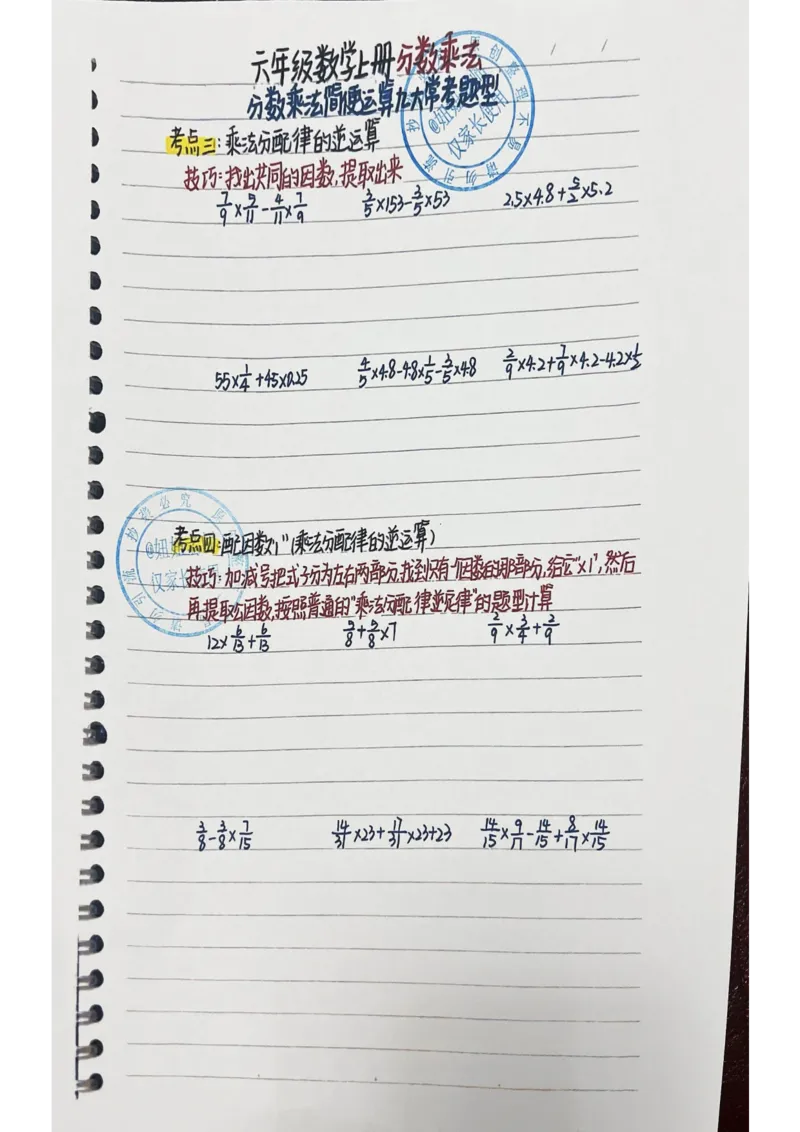 六年级数学上册分数乘法
分数乘法简便运算九大常考题型
考点三:乘法分配律的逆运算
技巧:找出共同的因数,提取出来
7/9×5/11-4/11×7/9 3/5×153-3/5×53 2.5×4.8+5/2×5.2
55×1/4+45×0.25 4/5×4.8-4.8×1/5-3/5×4.8 2/9×4.2+7/9×4.2-4.2×1/2
考点四:配因数"1"(乘法分配律的逆运算)
技巧:加减号把式子分为左右两部分,找到只有一个因数的那部分,给它"×1",然后
再提取公因数,按照普通的"乘法分配律逆定律"的题型计算
12×6/13+6/13 3/8+5/8×7 2/9×3/4+2/9
3/8-3/8×7/15 14/31×23+17/31×23+23 14/15×9/17-14/15+8/17×14/15
仅家长使用
仅家长